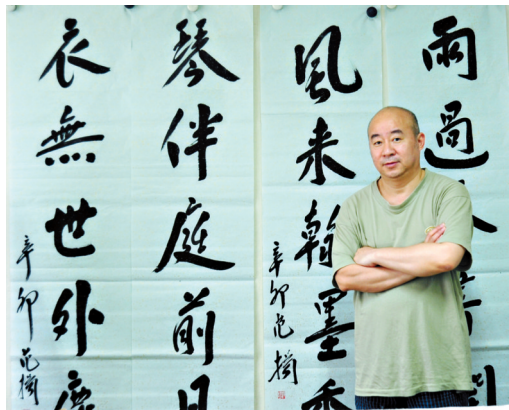 雨過
風来翰墨香
辛卯范
琴伴庭前月
衣無世外塵
辛卯范